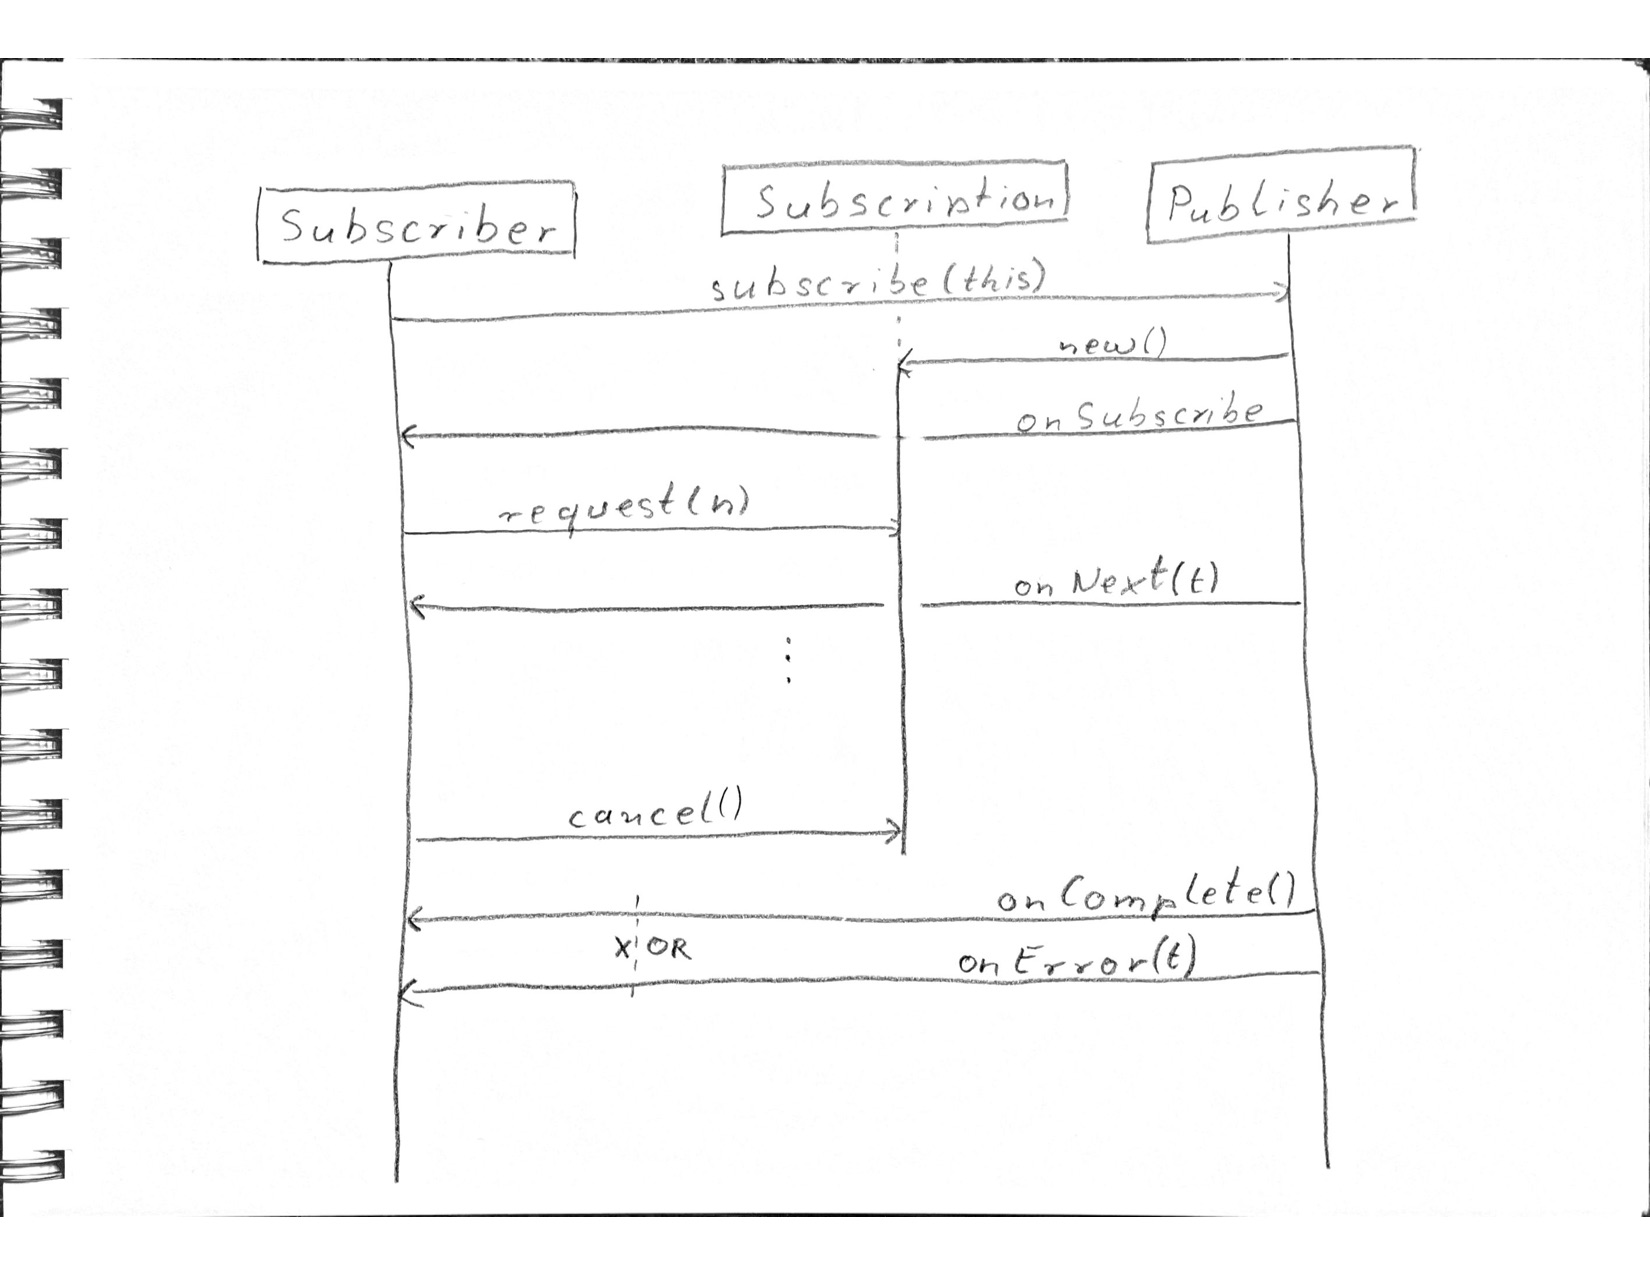 Subscriber
Subscription
Publisher
subscribe(this)
new()
onSubscribe
request(n)
onNext(t)
cancel()
onComplete()
XOR
onError(t)